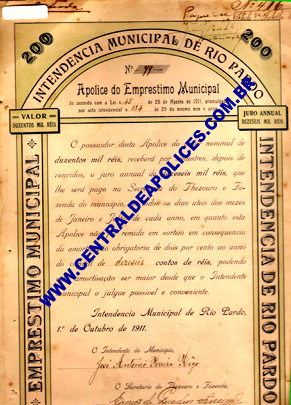 Nº 416
200
INTENDENCIA MUNICIPAL DE RIO PARDO
200
Nº 99
Apolice do Emprestimo Municipal
de accordo com a Lei n. 45 de 28 de Agosto de 1911,
por acto intendencial n. 124 de 29 do mesmo mez e anno
VALOR
DUZENTOS MIL RÉIS
JURO ANNUAL
DEZESEIS MIL RÉIS
EMPRESTIMO MUNICIPAL
INTENDENCIA DE RIO PARDO
O possuidor desta Apolice do nominal de
duzentos mil réis, receberá por semestres, depois de
vencidos, o juro annual de dezeseis mil réis, que
lhe será pago na Secretaria do Thezouro e Fa-
zenda do municipio, nos dias uteis dos mezes
de Janeiro e de cada anno, em quanto esta
Apolice não remida em sorteio em consequencia
da amortisação obrigatoria de dois por cento ao anno
do de dezeseis contos de réis, podendo
amortisação ser maior desde que o Intendente
municipal o julgue possivel e conveniente.
Intendencia Municipal de Rio Pardo,
1º de Outubro de 1911.
O Intendente do Municipio,
José Antonio Pereira Rego
O Secretario do Thezouro e Fazenda,
WWW.CENTRALDEAPOLICES.COM.BR